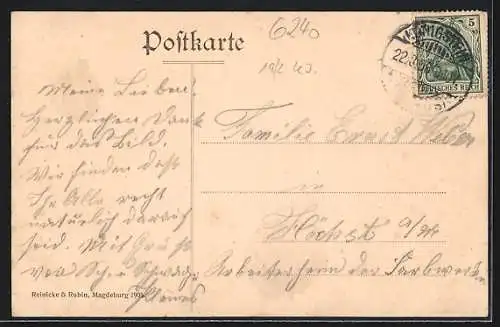 6240
Postkarte
19/2 40.
5
22.3.
DEUTSCHES REICH
Meine Lieben!
Herzlichen Dank
für das Bild.
Wir finden daß
Ihr Alle recht
natürlich darauf
seid. Mit Gruß
von Schw. u Schwager
Familie Ernst Weber
in
Höchst a/M
Arbeiterheim der Farbwerke
Reinicke & Rubin, Magdeburg